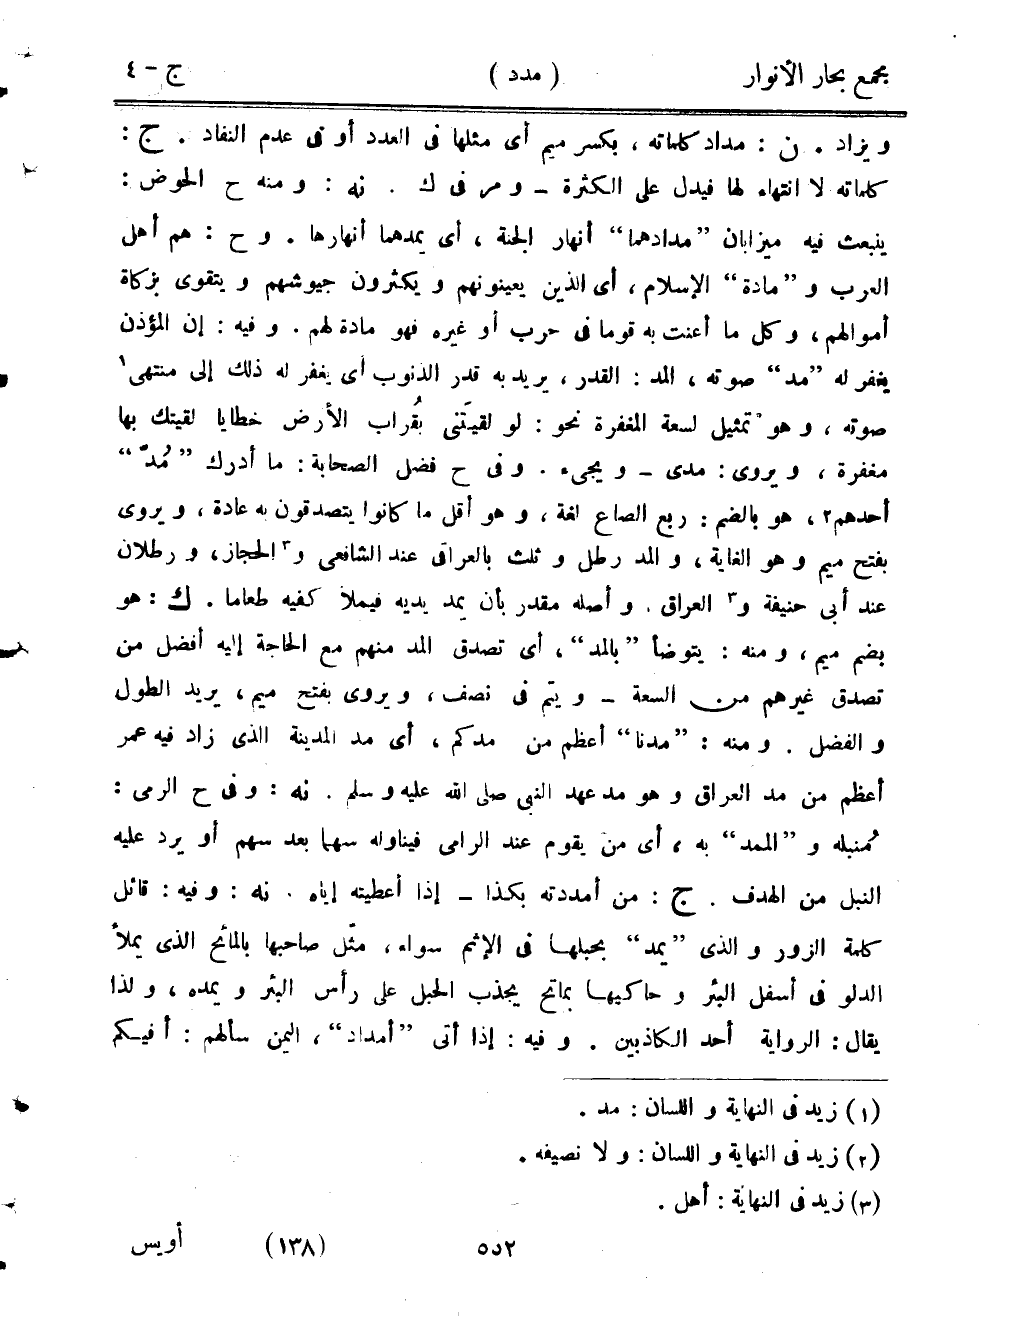 مجمع بحار الأنوار ( مدد ) ج - ٤
و يزاد . ن : مداد كلماته ، بكسر ميم أى مثلها فى العدد أو فى عدم النفاد . ج :
كلماته لا انتهاء لها فيدل على الكثرة ــ و مر فى ك . نه : و منه ح الحوض :
ينبعث فيه ميزابان ”مدادهما“ أنهار الجنة ، أى يمدهما أنهارها . و ح : هم أهل
العرب و ”مادة“ الإسلام ، أى الذين يعينونهم و يكثرون جيوشهم و يتقوى بزكاة
أموالهم ، و كل ما أعنت به قوما فى حرب أو غيره فهو مادة لهم . و فيه : إن المؤذن
يغفر له ”مد“ صوته ، المد : القدر ، يريد به قدر الذنوب أى يغفر له ذلك إلى منتهى١
صوته ، و هو تمثيل لسعة المغفرة نحو : لو لقيتَنى بقُراب الأرض خطايا لقيتك بها
مغفرة ، و يروى : مدى ــ و يجىء . و فى ح فضل الصحابة : ما أدرك ”مُدّ“
أحدهم٢ ، هو بالضم : ربع الصاع لغة ، و هو أقل ما كانوا يتصدقون به عادة ، و يروى
بفتح ميم و هو الغاية ، و المد رطل و ثلث بالعراقى عند الشافعى و٣ الحجاز ، و رطلان
عند أبى حنيفة و٣ العراق . و أصله مقدر بأن يمد يديه فيملأ كفيه طعاما . ك : هو
بضم ميم ، و منه : يتوضأ ”بالمد“ ، أى تصدق المد منهم مع الحاجة إليه أفضل من
تصدق غيرهم من السعة ــ و يتم فى نصف ، و يروى بفتح ميم ، يريد الطول
و الفضل . و منه : ”مدنا“ أعظم من مدكم ، أى مد المدينة الذى زاد فيه عمر
أعظم من مد العراق و هو مد عهد النبى صلى الله عليه و سلم . نه : و فى ح الرمى :
مُنبله و ”الممد“ به ، أى من يقوم عند الرامى فيناوله سهما بعد سهم أو يرد عليه
النبل من الهدف . ج : من أمددته بكذا ــ إذا أعطيته إياه . نه : و فيه : قائل
كلمة الزور و الذى ”يمد“ بحبلها فى الإثم سواء ، مثّل صاحبها بالمائح الذى يملأ
الدلو فى أسفل البئر و حاكيها بماتح يجذب الحبل على رأس البئر و يمده ، و لذا
يقال : الرواية أحد الكاذبين . و فيه : إذا أتى ”أمداد“ ، اليمن سألهم : أ فيكم
(١) زيد فى النهاية و اللسان : مد .
(٢) زيد فى النهاية و اللسان : و لا نصيفه .
(٣) زيد فى النهاية : أهل .
٥٥٢ (١٣٨) أويس